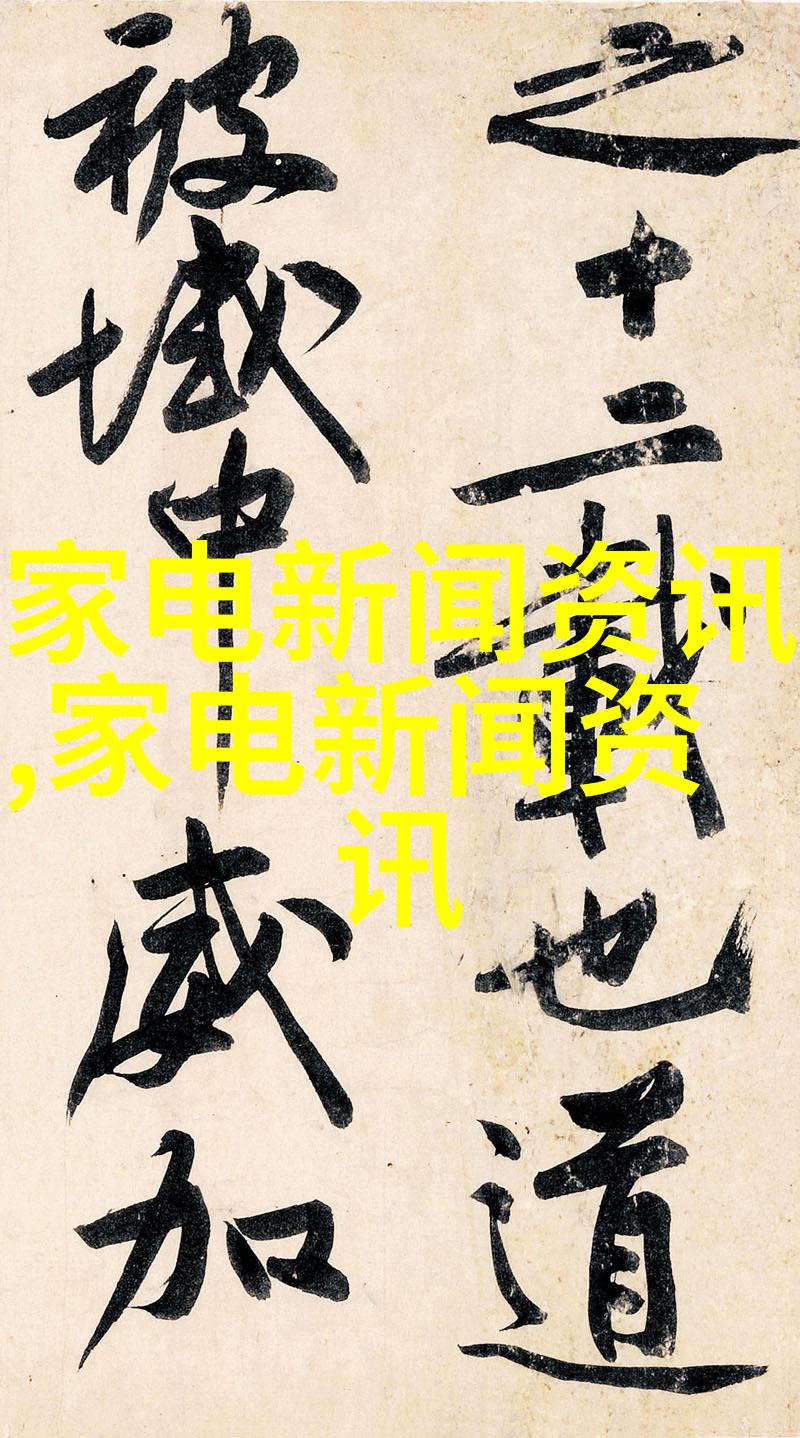 之十二載也道
被域中威加
家电新闻资讯
,家电新闻资
讯